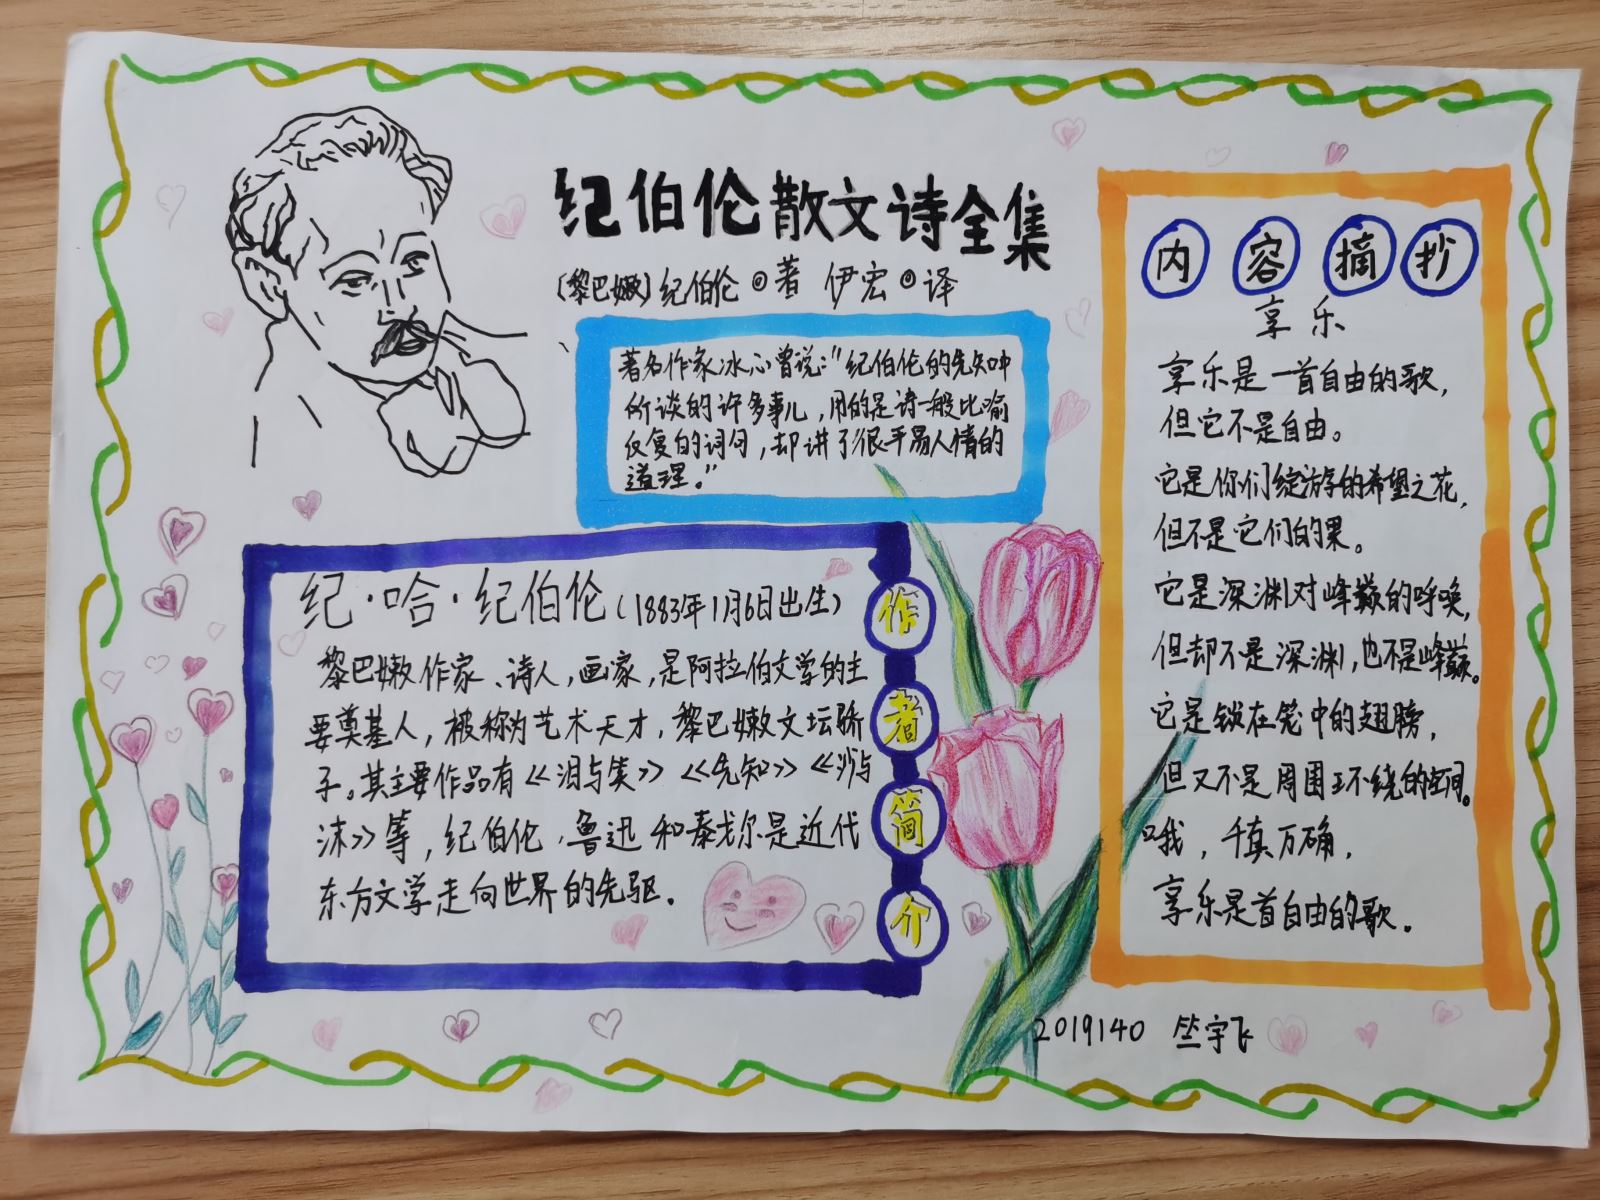 纪伯伦散文诗全集
(黎巴嫩)纪伯伦⊙著 伊宏⊙译
著名作家冰心曾说:"纪伯伦的先知中
所谈的许多事儿,用的是诗一般比喻
反复的词句,却讲了很平易人情的
道理."
纪·哈·纪伯伦(1883年1月6日出生)
黎巴嫩作家、诗人,画家,是阿拉伯文学的主
要奠基人,被称为艺术天才,黎巴嫩文坛骄
子。其主要作品有《泪与笑》《先知》《沙与
沫》等,纪伯伦,鲁迅和泰戈尔是近代
东方文学走向世界的先驱.
作
者
简
介
内容摘抄
享乐
享乐是一首自由的歌,
但它不是自由。
它是你们绽放的希望之花,
但不是它们的果。
它是深渊对峰巅的呼唤,
但却不是深渊,也不是峰巅。
它是锁在笼中的翅膀,
但又不是周围环绕的空间。
哦,千真万确,
享乐是首自由的歌.
2019140 竺宇飞